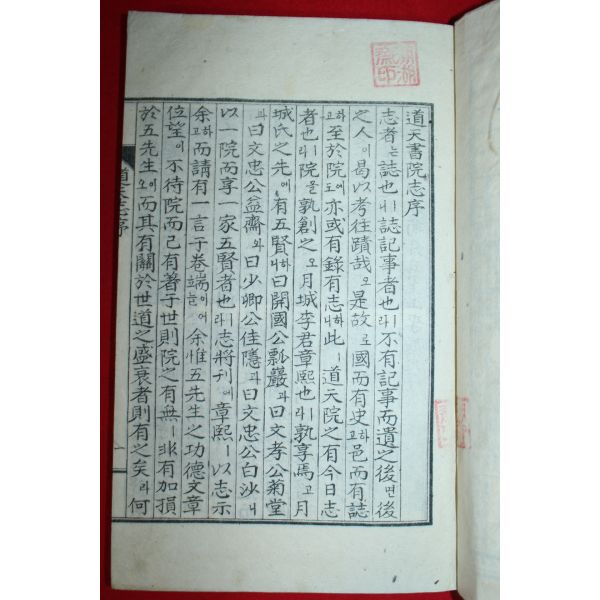 道天書院志序
志者는誌也ㅣ니誌記事者也ㅣ라不有記事而遺之後면後
之人이曷以考往蹟哉오是故로國而有史하고邑而有誌
하고至於院도亦或有錄有志하니此ㅣ道天院之有今日志
者也ㅣ라院을孰創之오月城李君章熙也ㅣ孰享焉고月
城氏之先에有五賢하니曰開國公瓢巖과曰文孝公菊堂
과曰文忠公益齋와曰少卿公佳隱과曰文忠公白沙ㅣ니
以一院而享一家五賢者也ㅣ라志將刊에章熙ㅣ以志示
余하고而請有一言于卷端이어늘余惟五先生之功德文章
位望이不待院而已有著于世則院之有無ㅣ非有加損
於五先生이오而其有關於世道之盛衰者則有之矣라何
道天志序
一